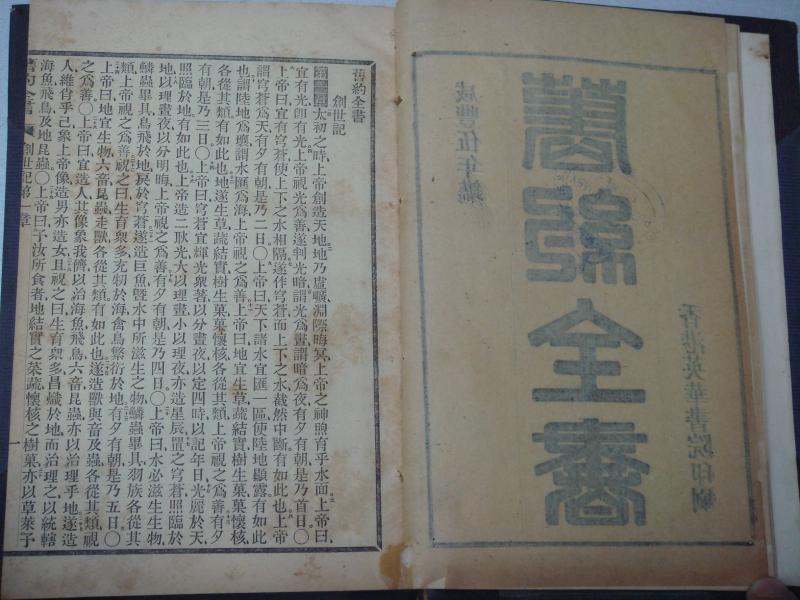 香港英華書院印刷
舊約全書
咸豐伍年鐫
舊約全書
創世記
太初之時上帝創造天地地乃虛曠淵際晦冥上帝之神煦育乎水面上帝曰
宜有光即有光上帝視光爲善遂判光暗謂光爲晝謂暗爲夜有夕有朝是乃首日〇
上帝曰宜有穹蒼使上下之水相隔遂作穹蒼而上下之水截然中斷有如此也上帝
謂穹蒼爲天有夕有朝是乃二日〇上帝曰天下諸水宜匯一區使陸地顯露有如此
也謂陸地爲壤謂水匯爲海上帝視之爲善上帝曰地宜生草蔬結實樹生菓菓懷核
各從其類有如此也地遂生草蔬結實樹生菓菓懷核各從其類上帝視之爲善有夕
有朝是乃三日〇上帝曰穹蒼宜輝光衆著以分晝夜以定四時以記年日光麗於天
照臨於地有如此也上帝造二耿光大以理晝小以理夜亦造星辰置之穹蒼照臨於
地以理晝夜以分明晦上帝視之爲善有夕有朝是乃四日〇上帝曰水必滋生生物
鱗蟲畢具鳥飛於地戾於穹蒼遂造巨魚曁水中所滋生之物鱗蟲畢具羽族各從其
類上帝視之爲善祝之曰生育衆多充牣於海禽鳥繁衍於地有夕有朝是乃五日〇
上帝曰地宜生物六畜昆蟲走獸各從其類有如此也遂造獸與畜及蟲各從其類視
之爲善〇上帝曰宜造人其像象我儕以治海魚飛鳥六畜昆蟲亦以治理乎地遂造
人維肖乎己象上帝像造男亦造女且祝之曰生育衆多昌熾於地而治理之以統轄
海魚飛鳥及地昆蟲〇上帝曰予汝所食者地結實之菜蔬懷核之樹菓亦以草萊予
舊約全書 創世記第一章 一